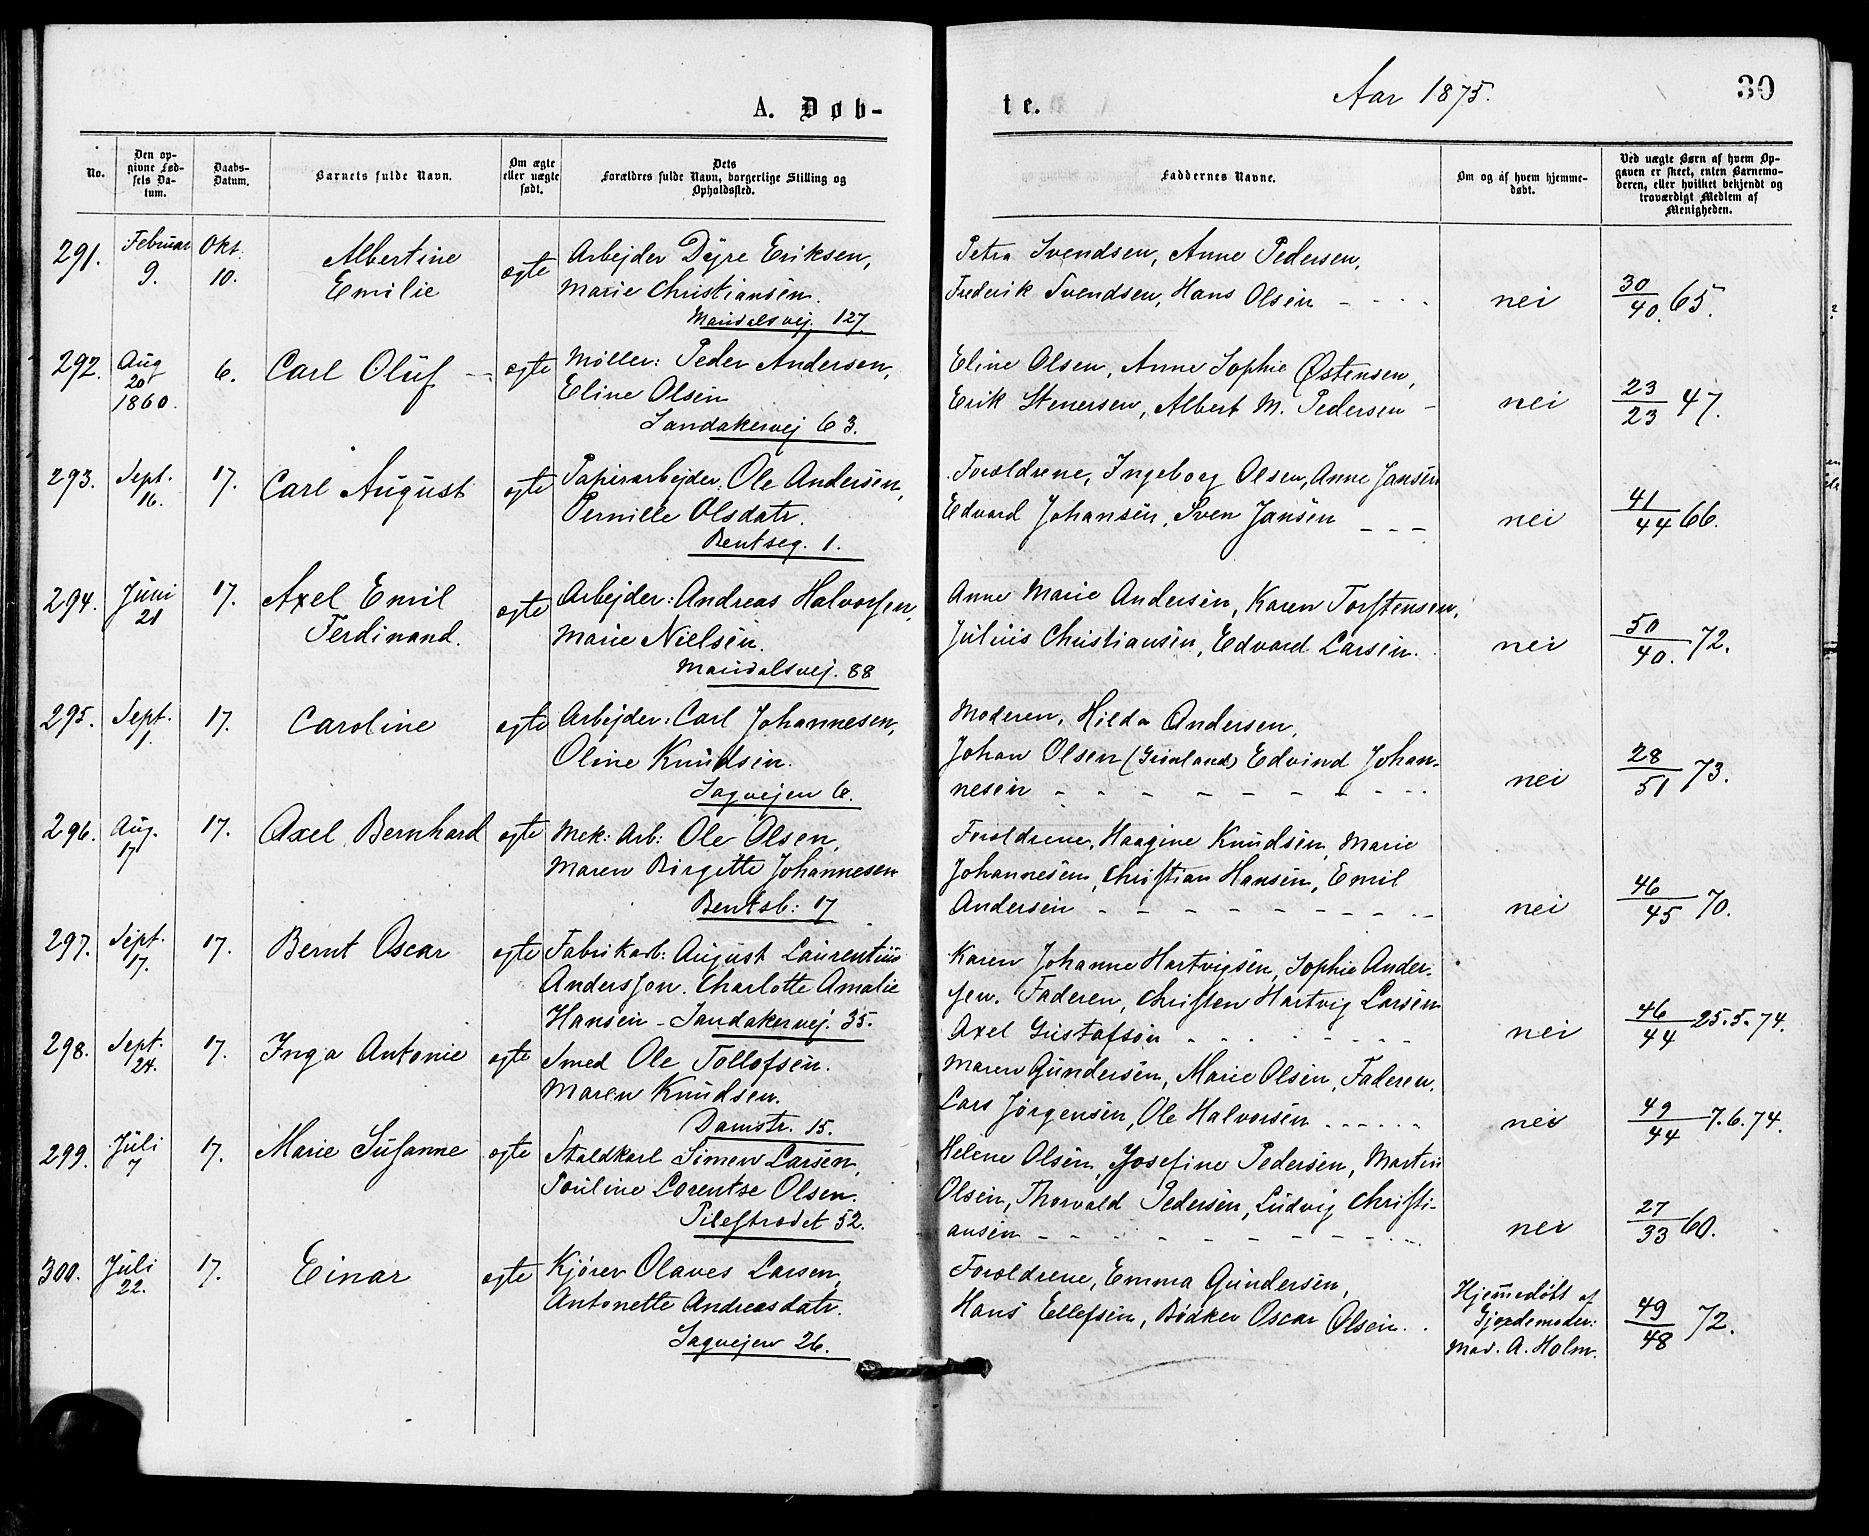 Aar 1875.
30
A. Døb-
te.
No.
Den op-
givne Fød-
sels Da-
tum.
Daabs-
Datum.
Barnets fulde Navn.
Om ægte
eller uægte
født.
Dets
Forældres fulde Navn, borgerlige Stilling og
Opholdssted.
Faddernes Navne.
Om og af hvem hjemme-
døbt.
Ved uægte Børn af hvem Op-
gaven er skeet, enten Barnemo-
deren, eller hvilket bekjendt og
troværdigt Medlem af
Menigheden.
291.
Februar
9.
Okt.
10.
Albertine
Emilie
ægte
Arbejder Dÿre Eriksen,
Marie Christiansen.
Maridalsvej. 127.
Petra Svendsen, Anne Pedersen,
Frederik Svendsen, Hans Olsen - - - -
nei
30/40. 65.
292.
Aug
20
1860.
6.
Carl Oluf -
ægte
Møller: Peder Andersen,
Eline Olsen
Sandakervej 63.
Eline Olsen, Anne Sophie Østensen,
Erik Stenersen, Albert M. Pedersen -
nei
23/23 47.
293.
Sept.
16.
17.
Carl August
ægte
Papirarbejder: Ole Andersen,
Pernille Olsdatr.
Bentseg. 1.
Forældrene, Ingeborg Olsen, Anne Jansen
Edvard Johansen, Sven Jansen - - -
nei
41/44 66.
294.
Juni
21
17.
Axel Emil
Ferdinand.
ægte
Arbejder: Andreas Halvorsen,
Marie Nielsen.
Maridalsvej. 88
Anne Marie Andersen, Karen Torstensen,
Julius Christiansen, Edvard Larsen.
nei
50/40. 72.
295.
Sept.
1.
17.
Caroline
ægte
Arbejder: Carl Johannesen,
Oline Knudsen.
Sagvejen 6.
Moderen, Hilda Andersen,
Johan Olsen (Grønland) Edvind Johan-
nesen - - - - - - - - -
nei
28/51 73.
296.
Aug.
17
17.
Axel Bernhard
ægte
Mek: Arb: Ole Olsen,
Maren Birgitte Johannesen
Bentsb: 17
Forældrene, Haagine Knudsen, Marie
Johannesen, Christian Hansen, Emil
Andersen - - - - - - - - -
nei
46/45 70.
297.
Sept.
17.
17.
Bernt Oscar
ægte
Fabrikarb: August Laurentius
Anderssen. Charlotte Amalie
Hansen - Sandakervej. 35.
Karen Johanne Hartvigsen, Sophie Ander-
sen. Faderen, Christen Hartvig Larsen
Axel Gustafson - - - - - - -
nei
46/44 25.5.74.
298.
Sept.
24.
17.
Inga Antonie
ægte
Smed Ole Tollofsen.
Maren Knudsen.
Damstr. 15.
Maren Gundersen, Marie Olsen, Faderen.
Lars Jørgensen, Ole Halvorsen - - - - - -
nei
49/44 7.6.74.
299.
Juli
7
17.
Marie Susanne
ægte
Staldkarl Simen Larsen,
Pouline Lorentse Olsen.
Pilestrædet 52.
Helene Olsen, Josefine Pedersen, Martin
Olsen, Thorvald Pedersen, Ludvig Christi-
ansen - - - - - - - - - -
nei
27/33 60.
300.
Juli
22.
17.
Einar
ægte
Kjører Olaves Larsen,
Antonette Andreasdatr.
Sagvejen 26.
Forældrene, Emma Gundersen,
Hans Ellefsen, Bødker Oscar Olsen. .
Hjemmedøbt af
Gjordemoder:
Mad. A. Holm.
49/48 72.